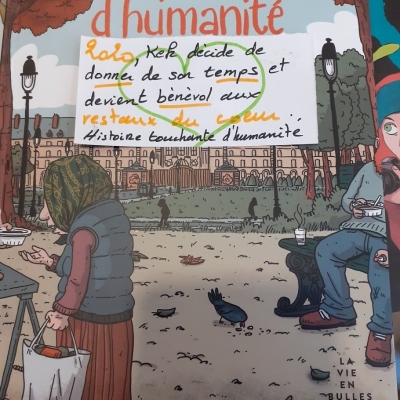 d'humanité
2020, Kek décide de
donner de son temps et
devient bénévol aux
restaux du coeur
Histoire touchante d'humanité
LA
VIE
EN
BULLES